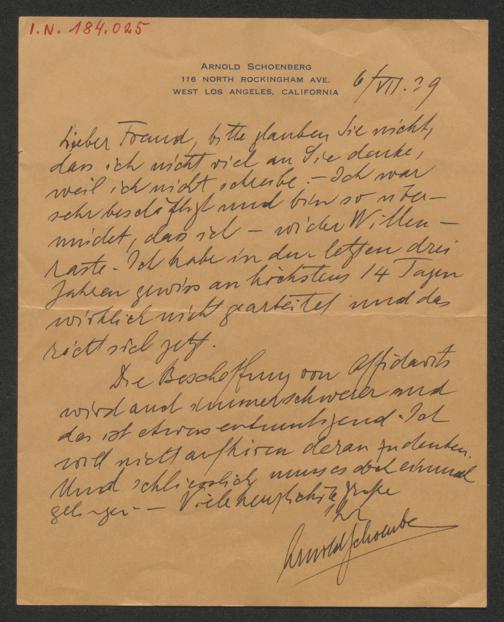 I.N. 184.025
ARNOLD SCHOENBERG
116 NORTH ROCKINGHAM AVE.
WEST LOS ANGELES, CALIFORNIA
6/VII.39
Lieber Freund, bitte glauben Sie nicht,
dass ich nicht viel an Sie denke,
weil ich nicht schreibe. – Ich war
sehr beschäftigt und bin so über-
müdet, dass ich – wider Willen –
raste. Ich habe in den letzten drei
Jahren gewiss an höchstens 14 Tagen
wirklich nicht gearbeitet und das
rächt sich jetzt.
Die Beschaffung von Affidavits
wird auch immer schwerer und
das ist etwas entmutigend. Ich
will nicht aufhören daran zu denken.
Und schliesslich muss es doch einmal
gelingen – Viele herzlichste Grüsse
Ihr
Arnold Schoenberg